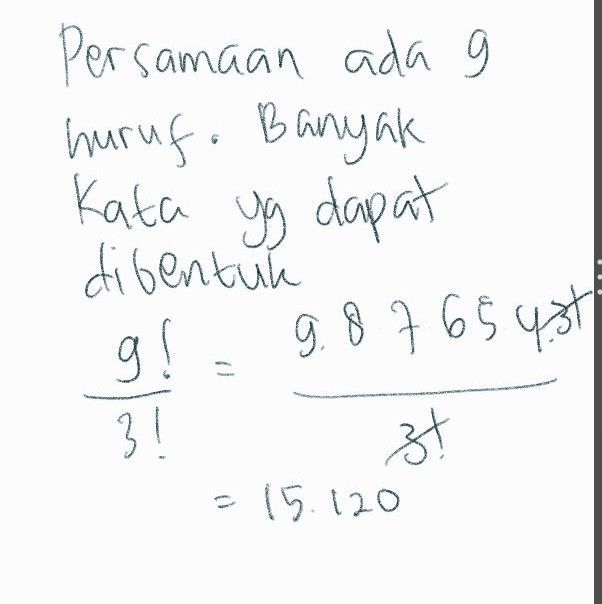 Persamaan ada 9
huruf. Banyak
Kata yg dapat
dibentuk
9! / 3! = 9. 8 7 6 5 4.3! / 3!
= 15.120